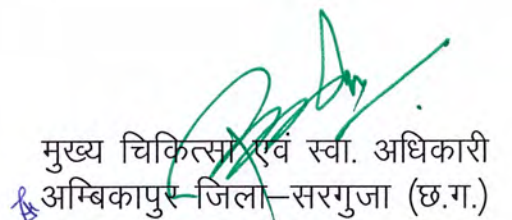 मुख्य चिकित्सा एवं स्वा. अधिकारी
अम्बिकापुर जिला–सरगुजा (छ.ग.)